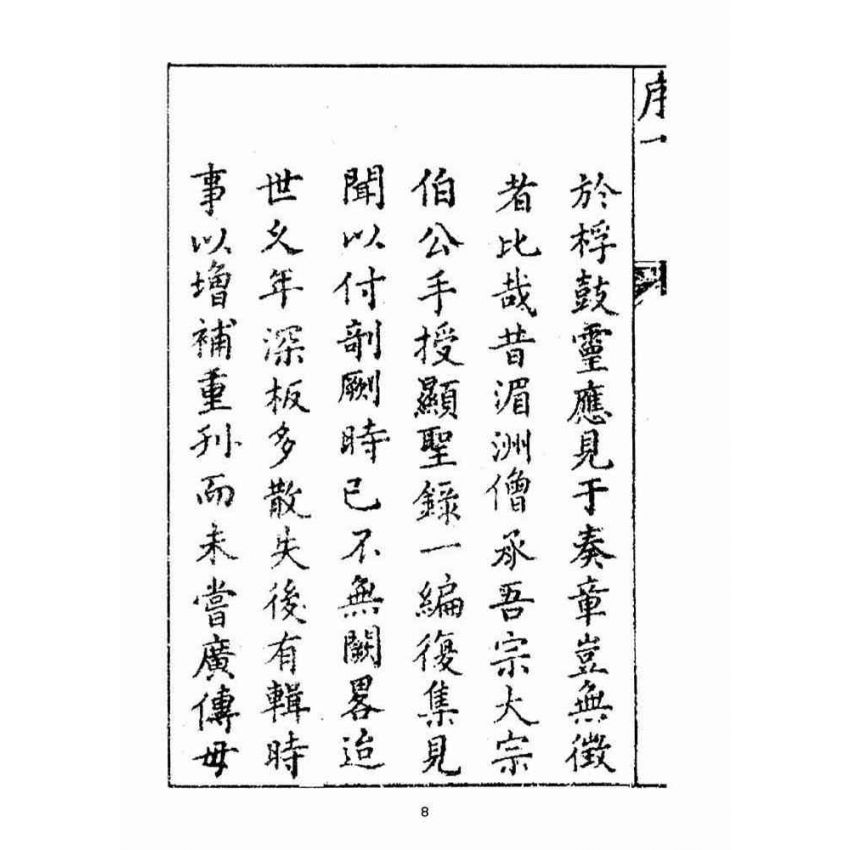 序一
於桴鼓靈應見于奏章豈無徵
者比哉昔湄洲僧承吾宗大宗
伯公手授顯聖錄一編復集見
聞以付剞劂時已不無闕畧迨
世夊年深板多散失後有輯時
事以增補重刋而未嘗廣傳毋
8